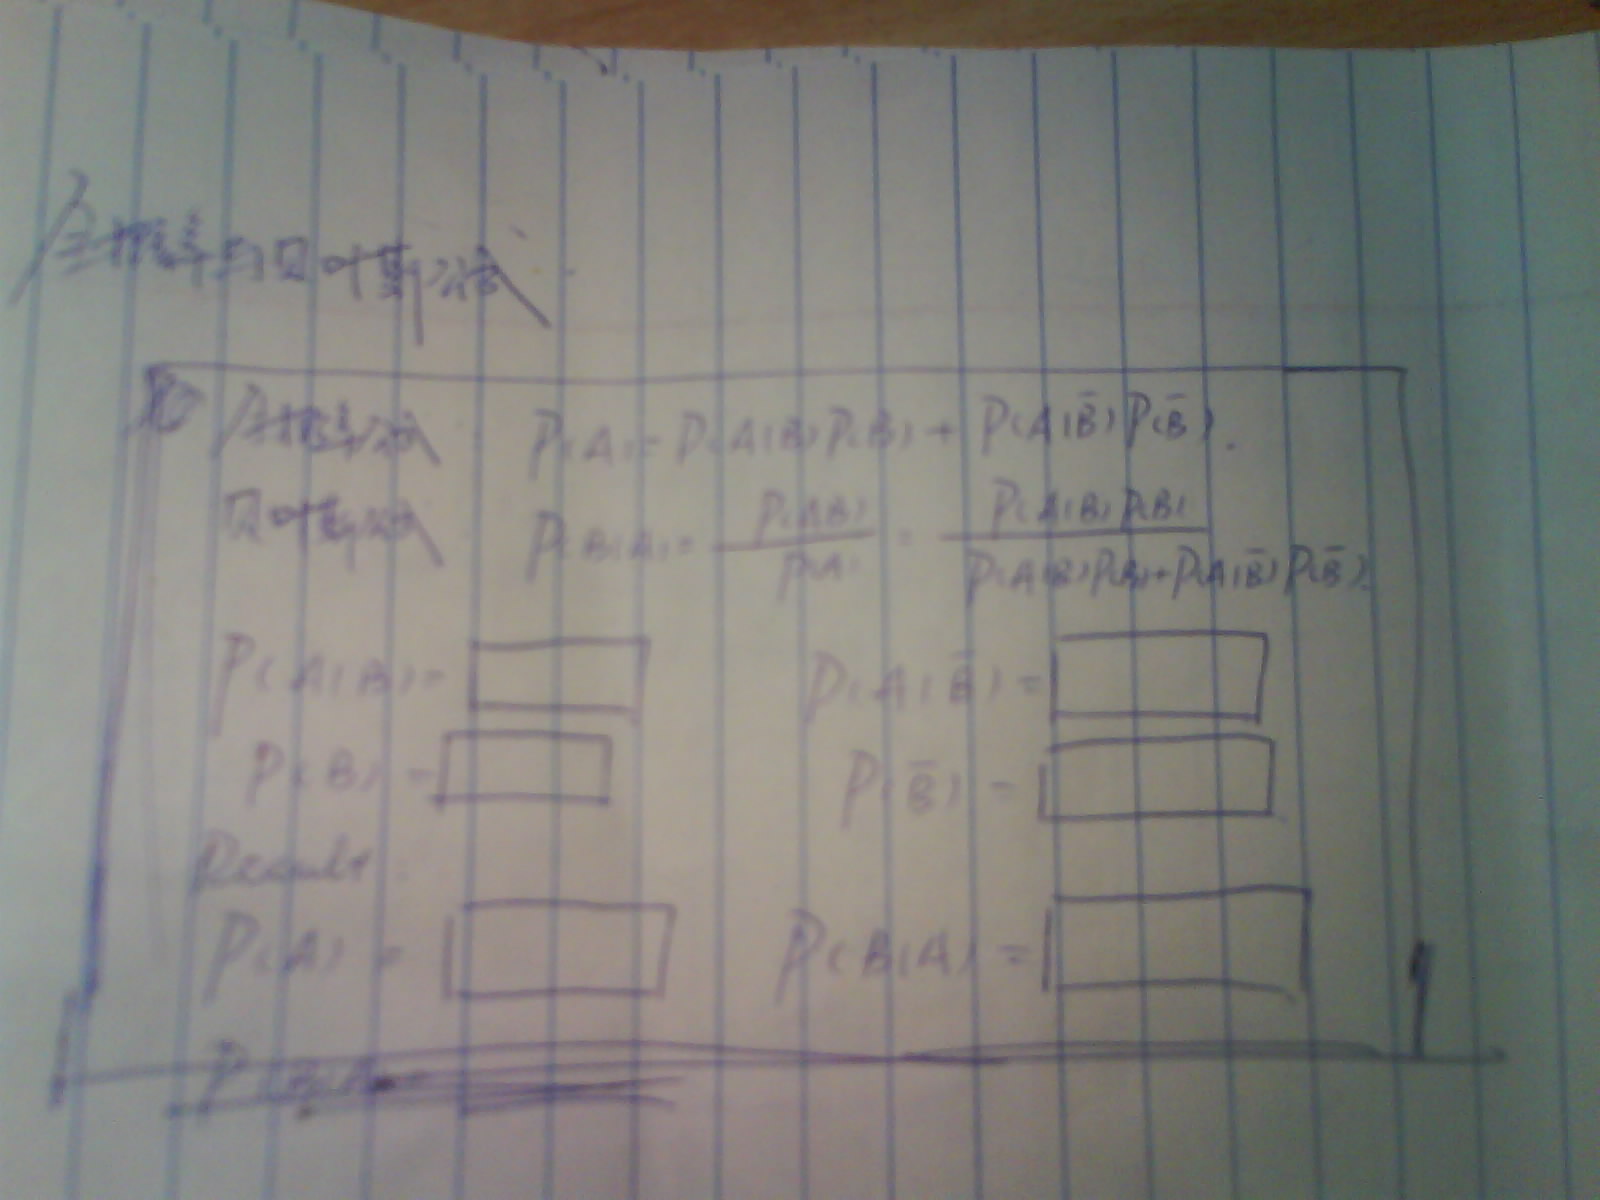 全概率与贝叶斯公式
全概率公式 P(A)=P(A|B)P(B)+P(A|B̄)P(B̄).
贝叶斯公式 P(B|A)=P(AB)/P(A)=P(A|B)P(B)/P(A|B)P(B)+P(A|B̄)P(B̄).
P(A|B)= P(A|B̄)=
P(B)= P(B̄)=
Result:
P(A)= P(B|A)=